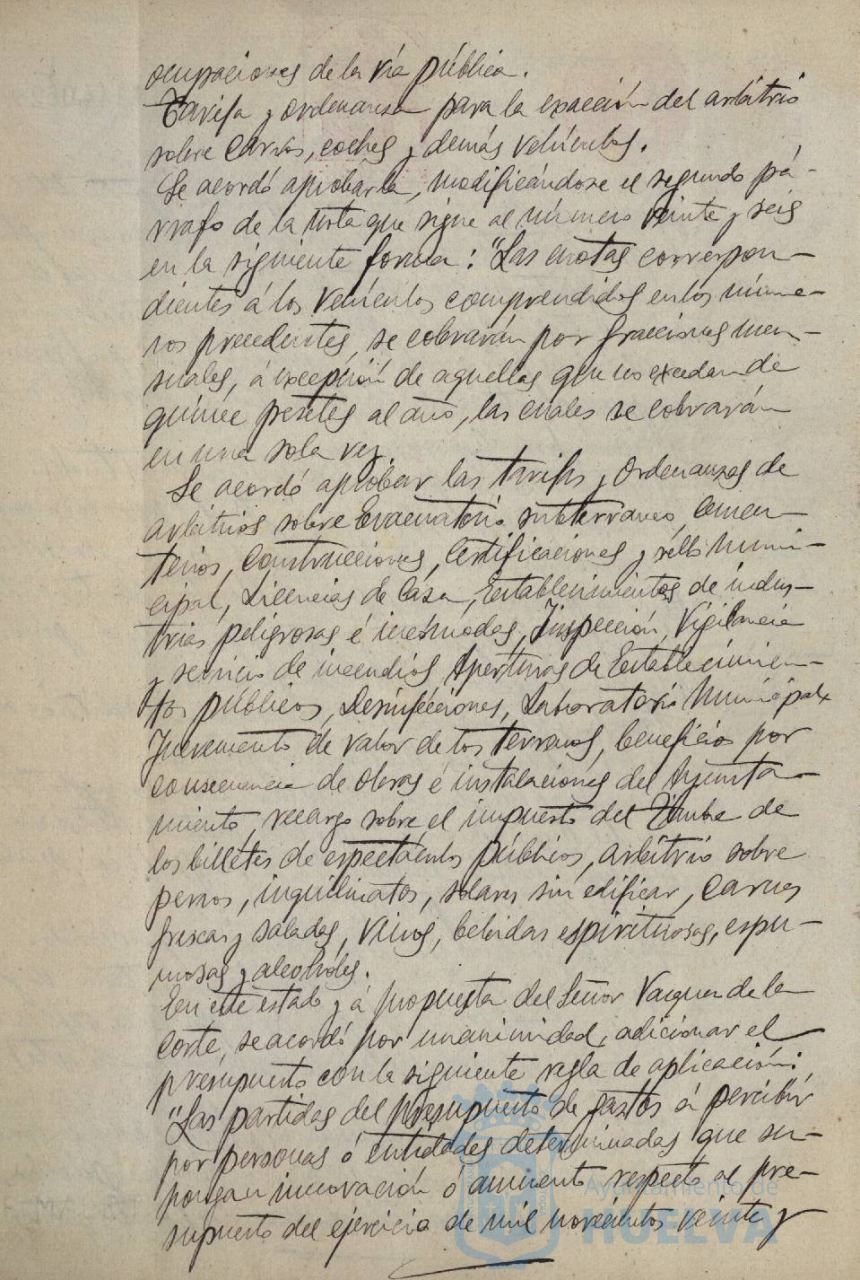 ocupaciones de la vía pública.
Tarifa y ordenanza para la exacción del arbitrio
sobre carros, coches y demás vehículos.
Se acordó aprobarla, modificándose el segundo pá-
rrafo de la nota que sigue al número veinte y seis
en la siguiente forma: "Las cuotas correspon-
dientes á los vehículos comprendidos en los núme-
ros precedentes, se cobrarán por fracciones men-
suales, á excepción de aquellas que no excedan de
quince pesetas al año, las cuales se cobrarán
en una sola vez.
Se acordó aprobar las tarifas y Ordenanzas de
arbitrios sobre Evacuatorio subterraneo, Cemen-
terios, Construcciones, Certificaciones y sello muni-
cipal, Licencias de Caza, Establecimientos de indus-
trias peligrosas é incómodas, Inspección, Vigilancia
y servicio de incendios, Aperturas de Establecimien-
tos públicos, Desinfecciones, Laboratorio Municipal,
Incremento de valor de los terrenos, beneficios por
consecuencia de obras é instalaciones del Ayunta-
miento, recargo sobre el impuesto del Timbre de
los billetes de espectáculos públicos, arbitrio sobre
perros, inquilinatos, solares sin edificar, Carnes
frescas y saladas, Vinos, bebidas espirituosas, espu-
mosas y alcoholes.
En este estado y á propuesta del Señor Vazquez de la
Corte, se acordó por unanimidad, adicionar el
presupuesto con la siguiente regla de aplicación:
"Las partidas del presupuesto de gastos á percibir
por personas ó entidades determinadas que su-
pongan innovación ó aumento respecto al pre-
supuesto del ejercicio de mil novecientos veinte y
Ayuntamiento de
HUELVA